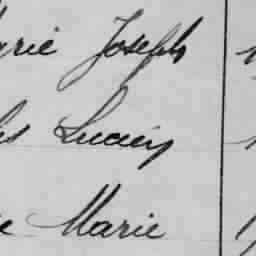 arie Joseph
es Lucien
e Marie